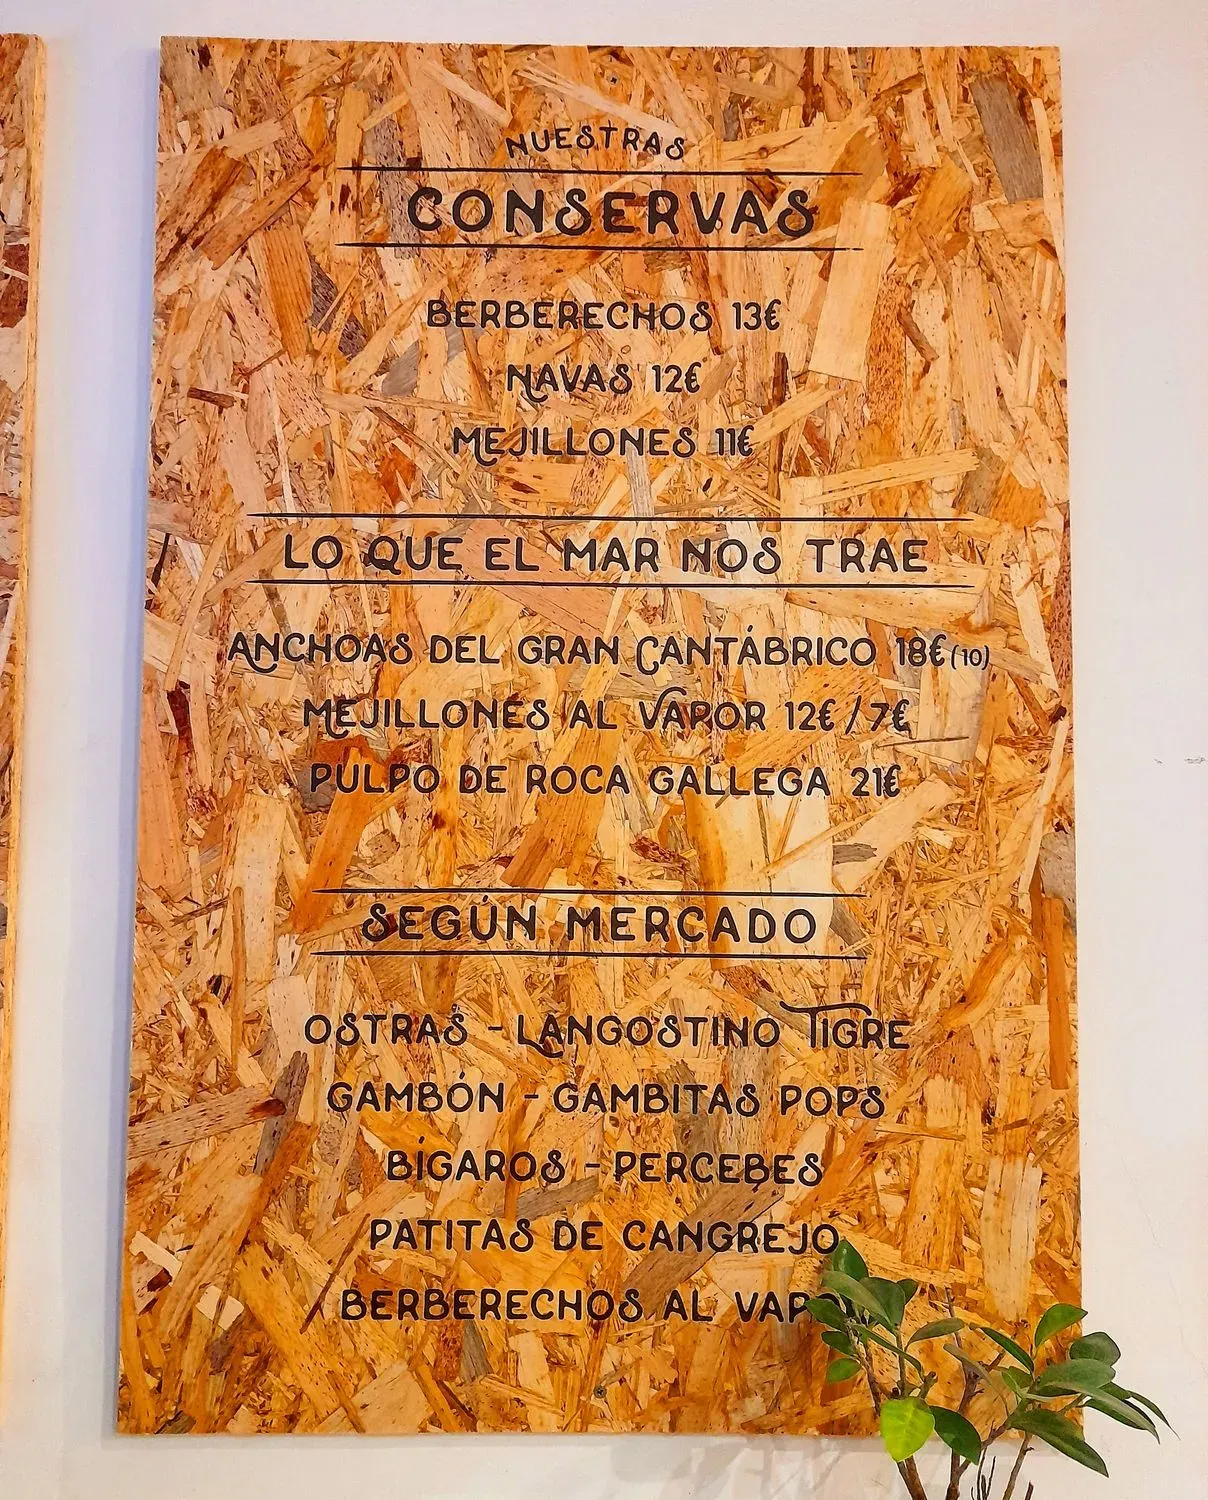 NUESTRAS
CONSERVAS
BERBERECHOS 13€
NAVAS 12€
MEJILLONES 11€
LO QUE EL MAR NOS TRAE
ANCHOAS DEL GRAN CANTÁBRICO 18€ (10)
MEJILLONES AL VAPOR 12€ / 7€
PULPO DE ROCA GALLEGA 21€
SEGÚN MERCADO
OSTRAS - LANGOSTINO TIGRE
GAMBÓN - GAMBITAS POPS
BÍGAROS - PERCEBES
PATITAS DE CANGREJO
BERBERECHOS AL VAPOR